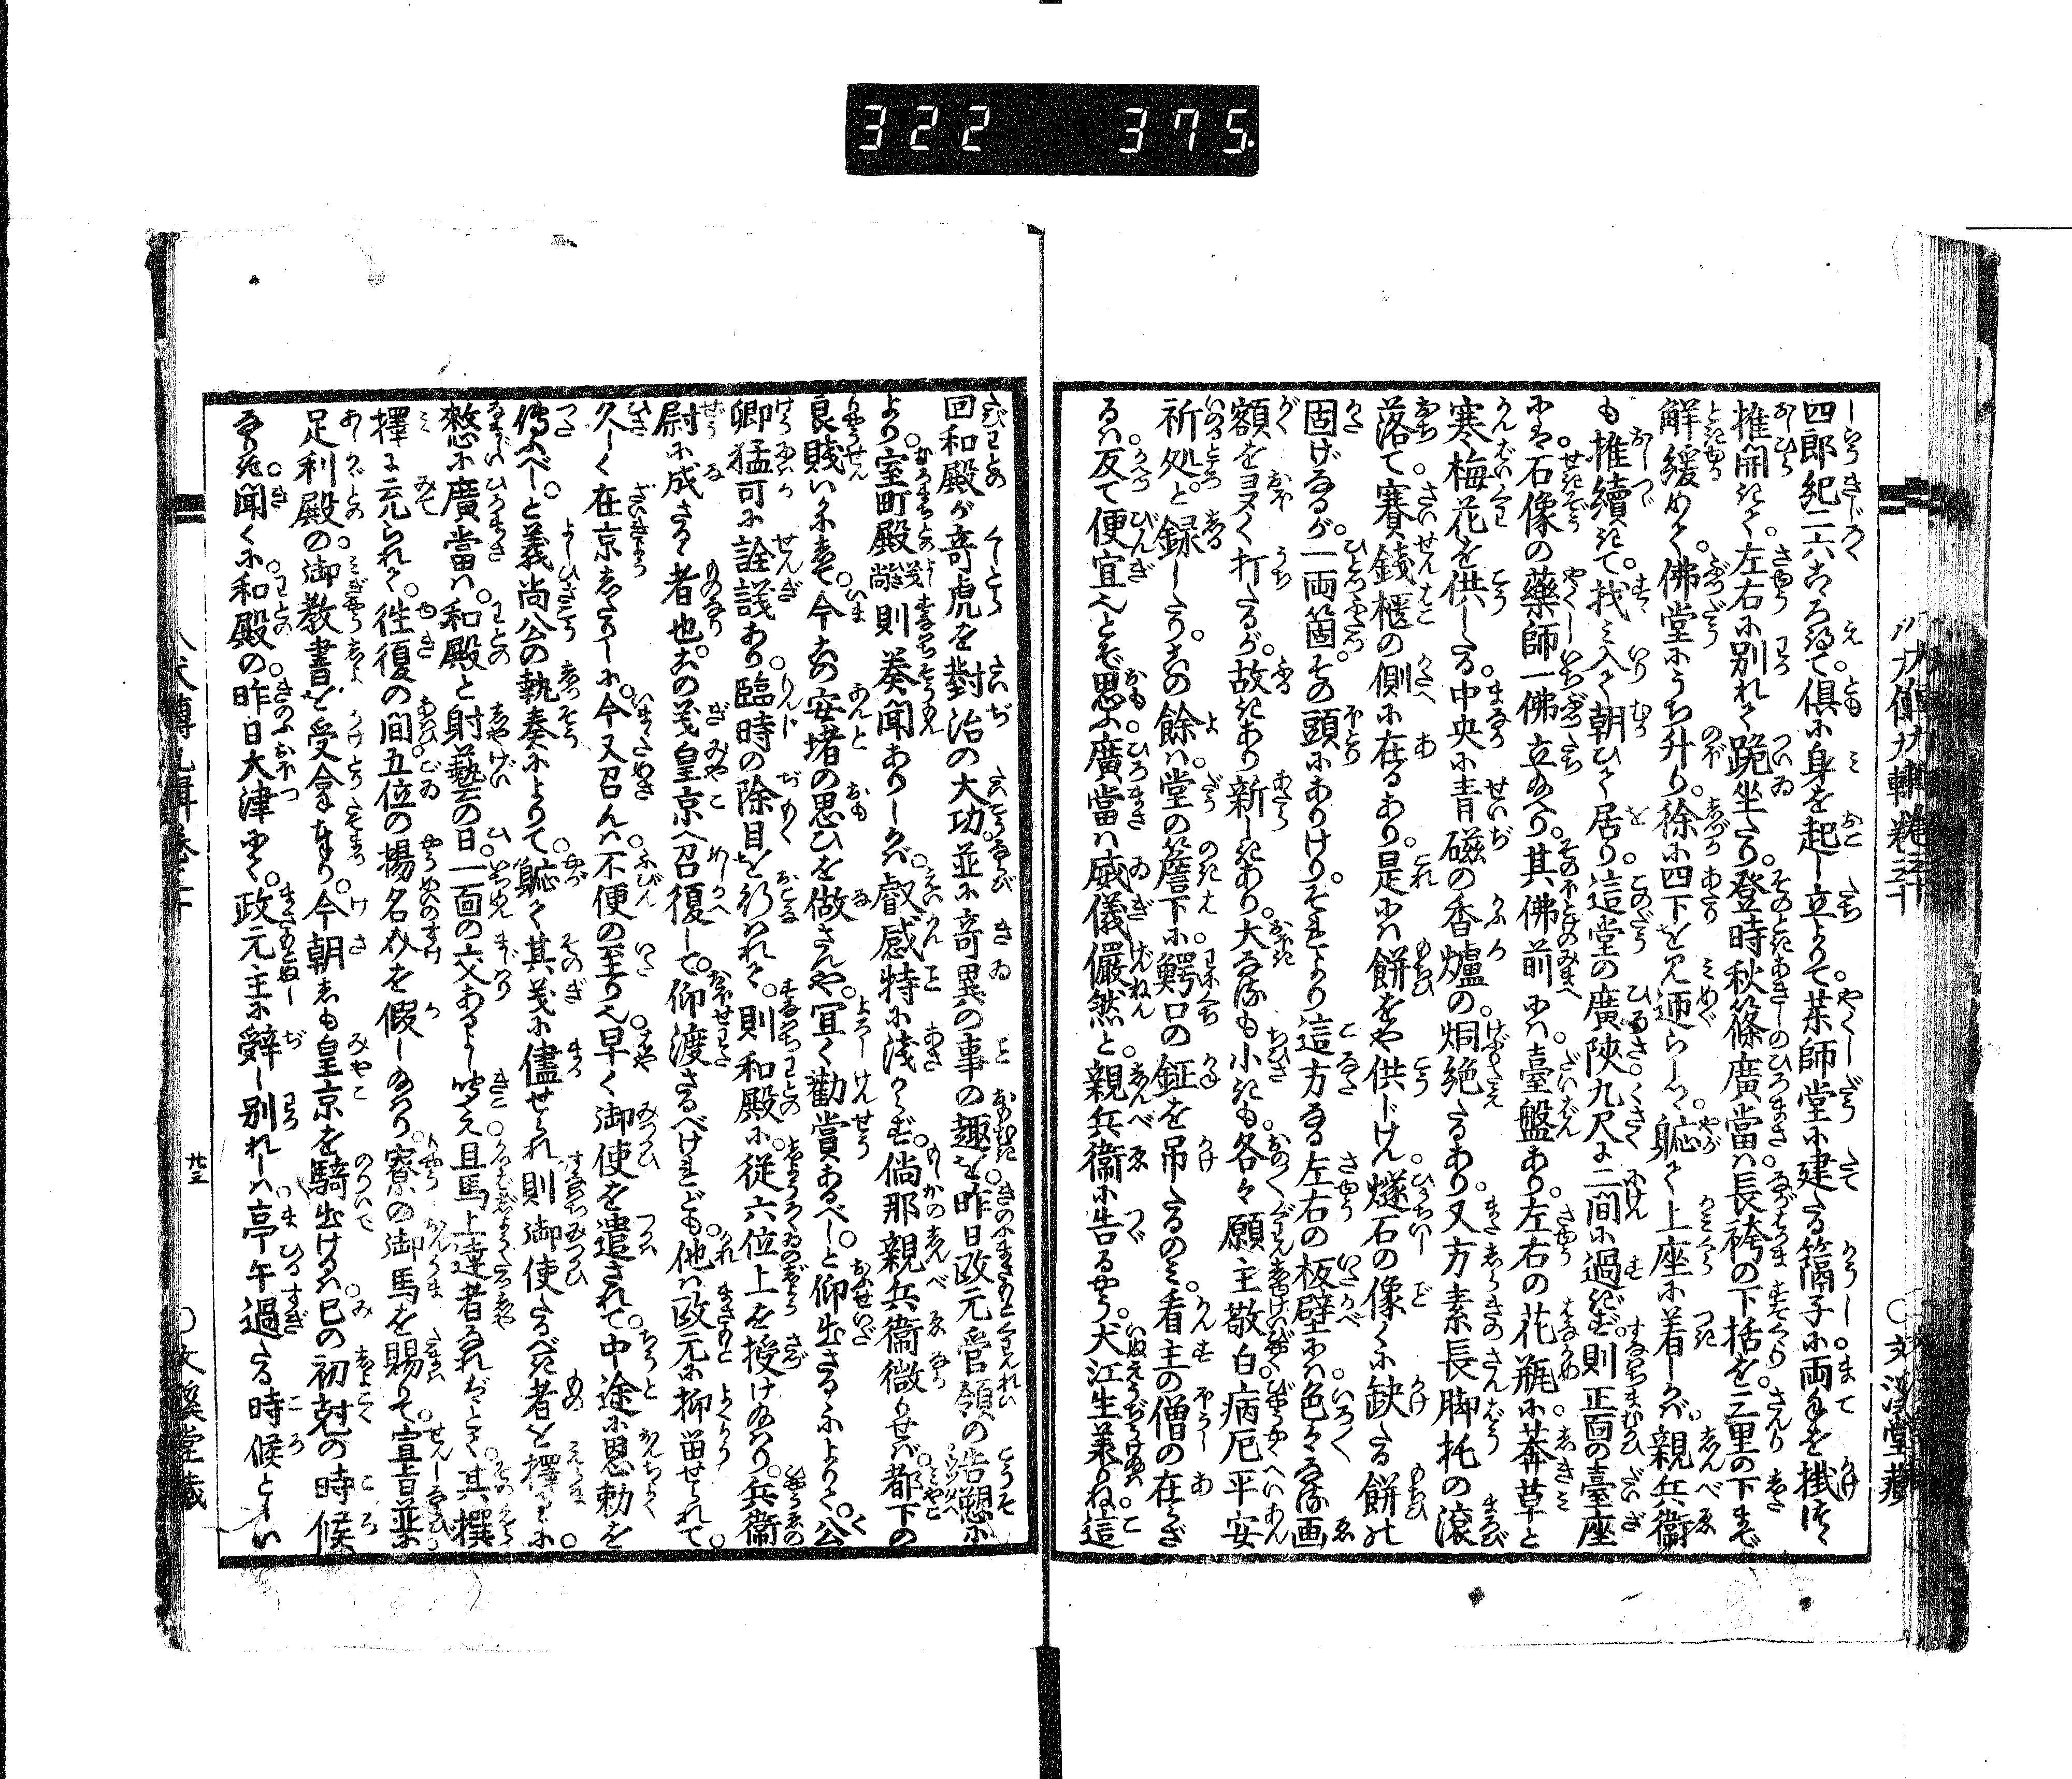 322 375
四郎紀二六こゝろ得て。倶に身を起し立よりて。茱師堂に建たる篩子に両手を掛け
推開きて。左右に別れて跪坐たり。登時秋篠廣當は。長袴の下括を。三里の下まで
解緩めて。佛堂にうち升り。徐に四下を見遶らしつ。軈て上座に着しかば。親兵衛
も推續きて。找み入りて朝ひて居り。這堂の廣陜九尺に二間に過ぎず。則正面の臺座
には。石像の藥師一佛立給へり。其佛前には。臺盤あり。左右の花瓶に。莽草と
寒梅花を供したる。中央に青磁の香爐の。烟絶たるあり。又方素長脚托の滾
落て。賽錢櫃の側に在るあり。是には餅をや供じけん。燧石の像く。に缺たる餅の
固げなるが。一両箇。その頭にありけり。それより這方なる左右の板壁には。色々なる画
額をヨヌく打たるが。故きあり新しきあり。大なるも小きも。各々願主敬白病厄平安
祈処と録したり。この餘は。堂の簷下に。鰐口の鉦を吊たるのみ。看主の僧の在らざ
るは。反て便宜へとぞ思ふ。廣當は威儀儼然と。親兵衛に告るやう。犬江生兼ね這
回和殿が竒虎を對治の大功。並に竒異の事の趣を。昨日政元管領の浩愬に
より。室町殿 義尚 則奏聞ありしかば。叡感特に淺からず。尚那親兵衛微りせば。都下の
良賤いかにして。今この安堵の思ひを做さんや。宜く勸賞あるべしと仰出さるゝによりて。公
卿猛可に詮議あり。臨時の除目を行れて。則和殿に。從六位上を授け給はり。兵衛
尉に成さるゝ者也。この義皇京へ召復して。仰渡さるべけれども。他は政元に抑留せられて。
久しく在京したりしに。今又召んは不便の至り也。早く御使を遣されて。中途に恩勅を
傳ふべしと。義尚公の執奏によりて。軈て其義に儘せられ。則御使たるべき者を擇るゝに。
憖に廣當は。和殿と射藝の日。一面の交あるよし聞え。且馬上達者なればとて。其撰
擇に充られて。徃復の間。五位の揚名介を假し給はり。寮の御馬を賜りて。宣旨並に
足利殿の。御教書を受拿まゐり。今朝しも皇京を騎出けるは。巳の初尅の時候
なりき。聞くに和殿の昨日大津にて。政元主に辭し別れしは。亭午過たる時候とい
文溪堂藏
八犬傳九輯卷三十
廿三
文溪堂藏